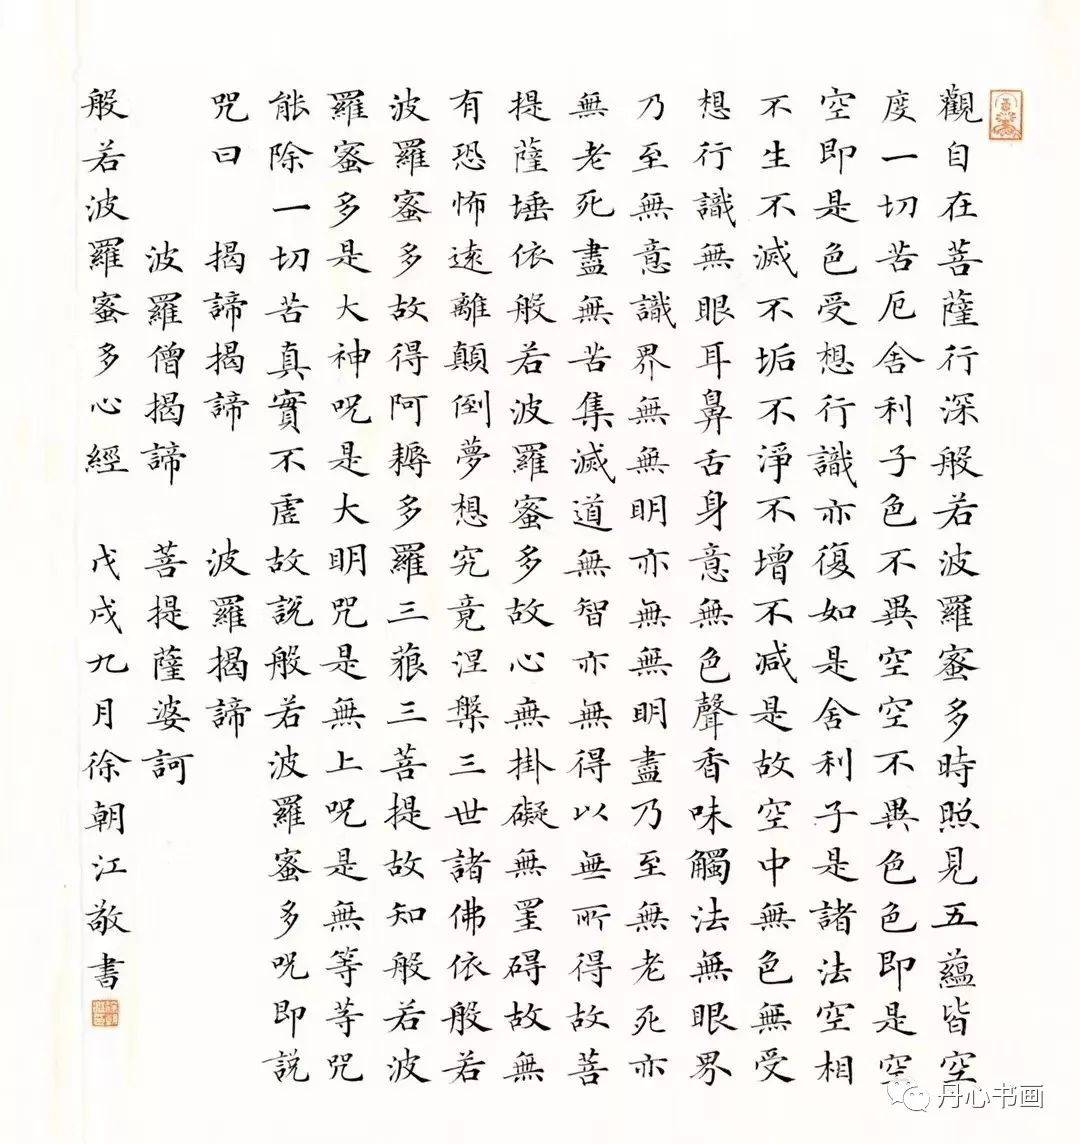 觀自在菩薩行深般若波羅蜜多時照見五蘊皆空
度一切苦厄舍利子色不異空空不異色色即是空
空即是色受想行識亦復如是舍利子是諸法空相
不生不滅不垢不淨不增不減是故空中無色無受
想行識無眼耳鼻舌身意無色聲香味觸法無眼界
乃至無意識界無無明亦無無明盡乃至無老死亦
無老死盡無苦集滅道無智亦無得以無所得故菩
提薩埵依般若波羅蜜多故心無掛礙無罣碍故無
有恐怖遠離顛倒夢想究竟涅槃三世諸佛依般若
波羅蜜多故得阿耨多羅三藐三菩提故知般若波
羅蜜多是大神咒是大明咒是無上呪是無等等咒
能除一切苦真實不虛故說般若波羅蜜多呪即說
咒曰 揭諦揭諦 波羅揭諦
波羅僧揭諦 菩提薩婆訶
般若波羅蜜多心經 戊戌九月徐朝江敬書
丹心书画